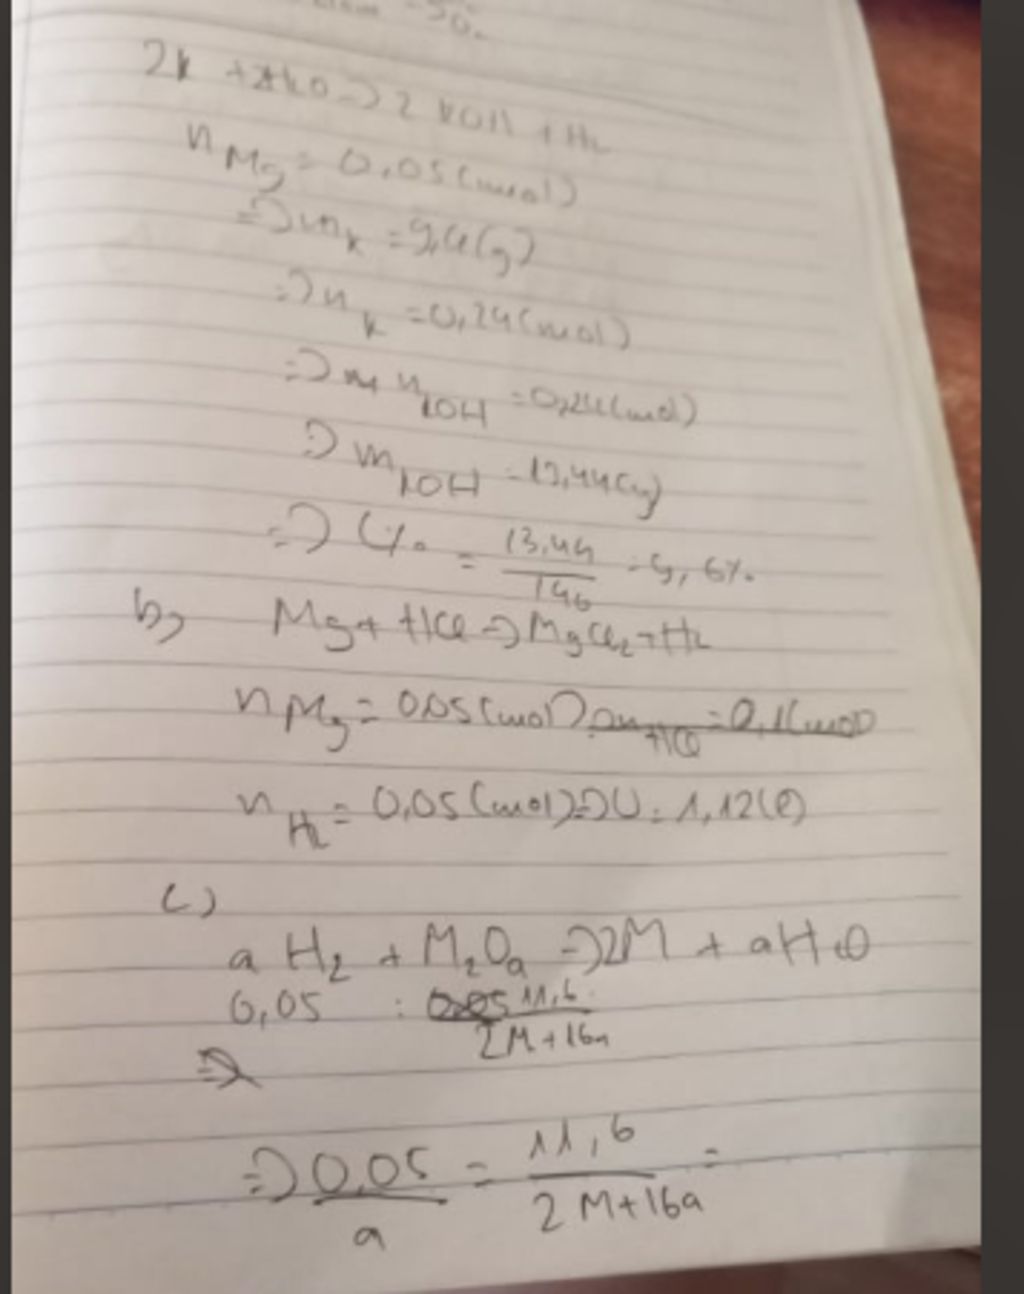 2K + 2H2O => 2KOH + H2
n Mg = 0,05 (mol)
=> m K = 9,4 (g)
=> n K = 0,24 (mol)
=> n KOH = 0,24 (mol)
=> m KOH = 13,44 (g)
=> C% = 13,44 / 140 = 9,6%
b, Mg + HCl => MgCl2 + H2
n Mg = 0,05 (mol) => n HCl = 0,1 (mol)
n H2 = 0,05 (mol) => V = 1,12 (l)
c)
a H2 + M2Oa => 2M + aH2O
0,05 : 0,05 11,6 / 2M + 16a
=>
=> 0,05 / a = 11,6 / 2M + 16a =